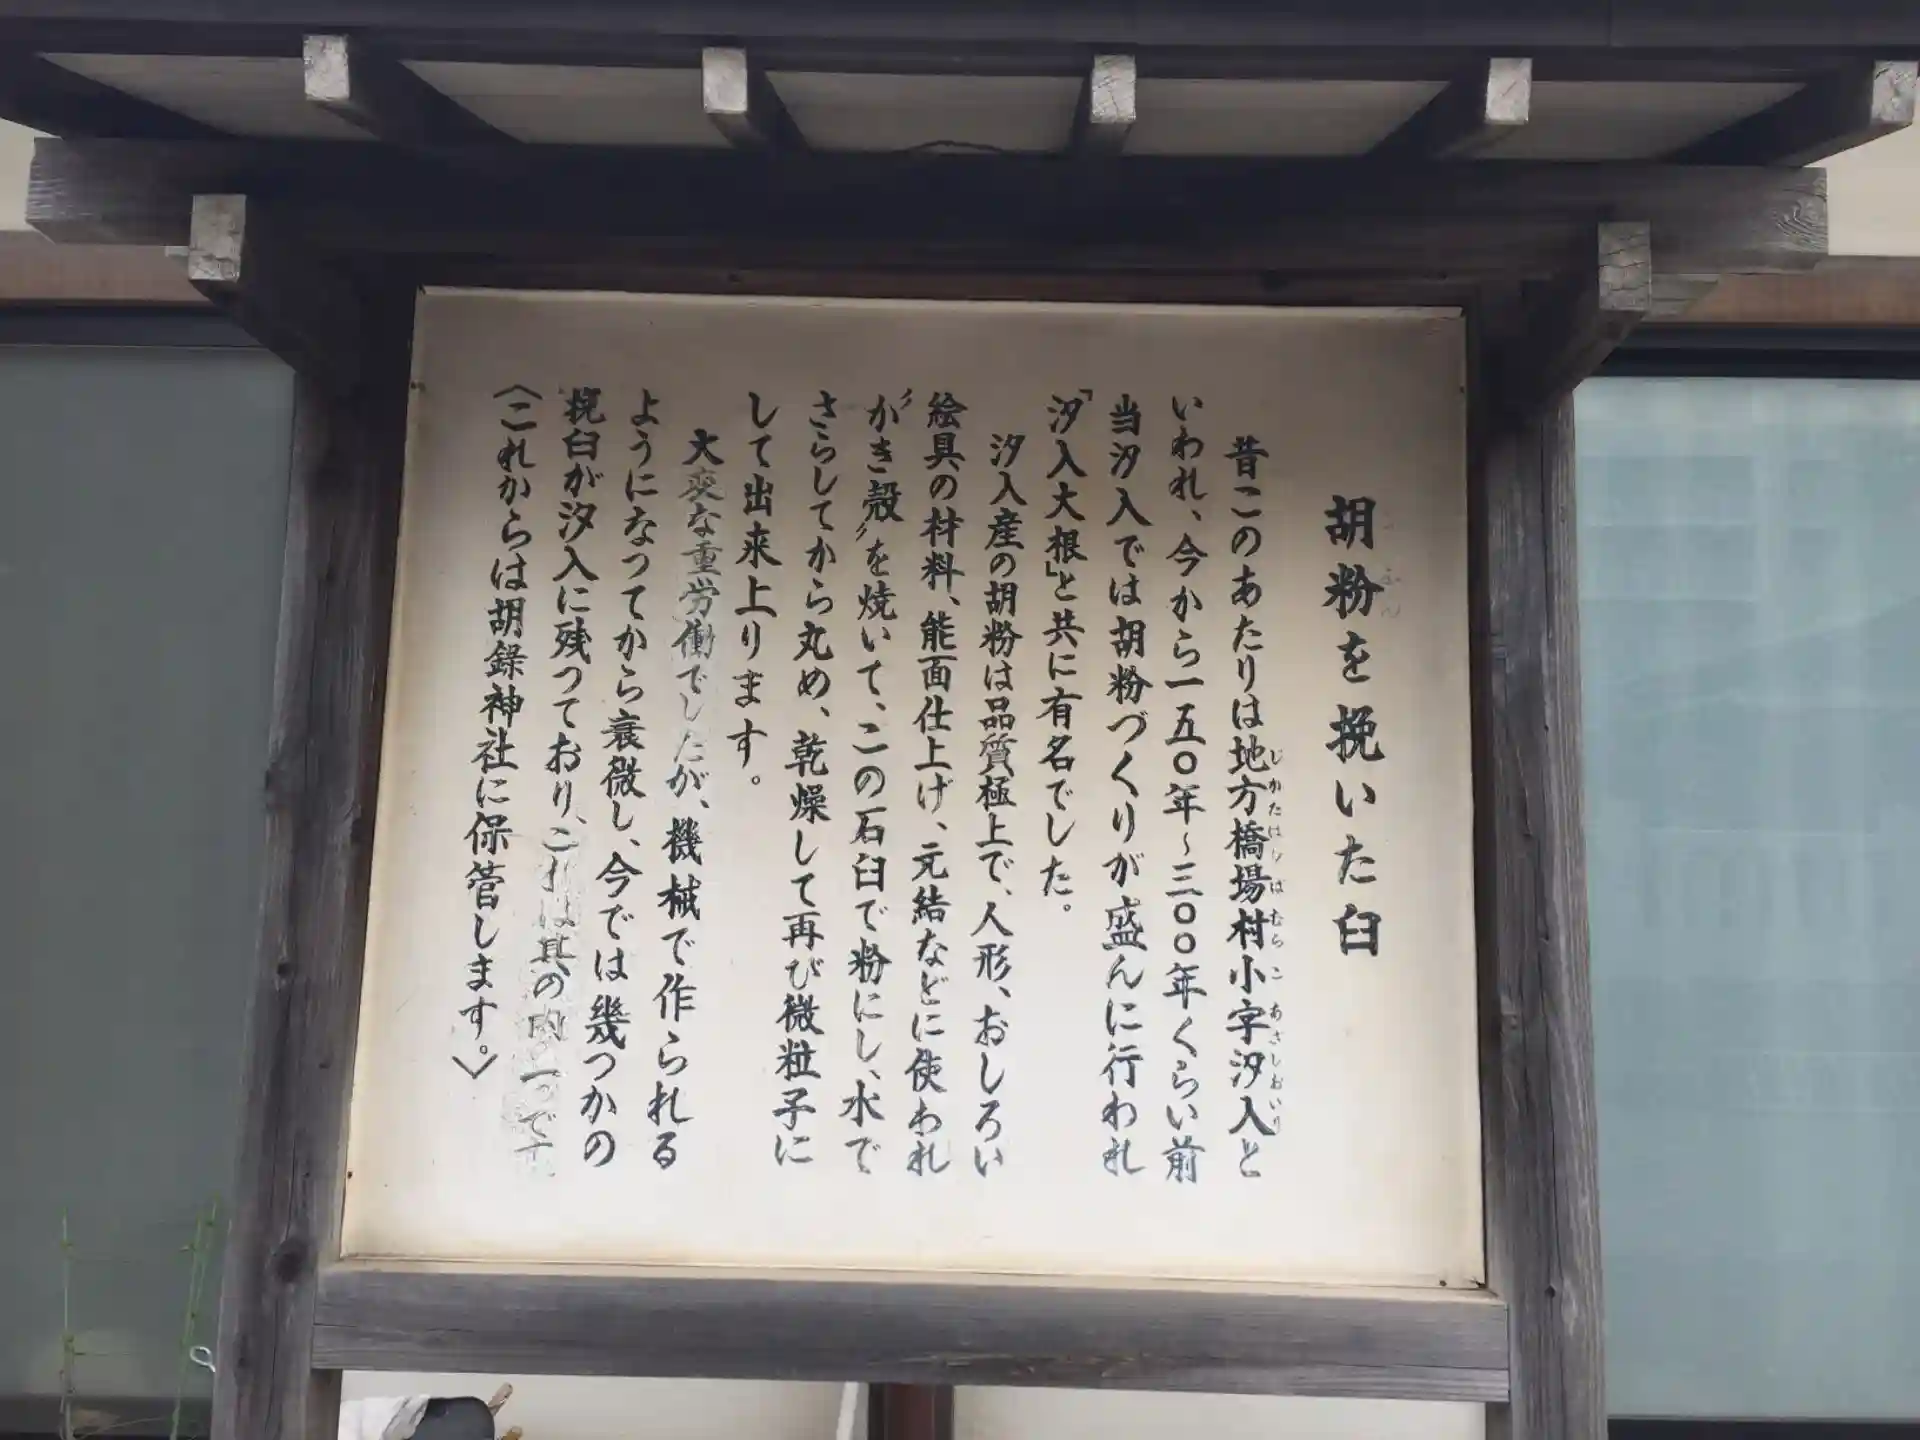 胡粉を挽いた臼
昔このあたりは地方橋場村小字汐入と
いわれ、今から一五〇年~三〇〇年くらい前
当汐入では胡粉づくりが盛んに行われ
「汐入大根」と共に有名でした。
汐入産の胡粉は品質極上で、人形、おしろい
絵具の材料、能面仕上げ、元結などに使われ
〝かき殻〟を焼いて、この石臼で粉にし、水で
さらしてから丸め、乾燥して再び微粒子に
して出来上ります。
大変な重労働でしたが、機械で作られる
ようになってから衰微し、今では幾つかの
挽臼が汐入に残っており、これは其の内の一つです
〈これからは胡録神社に保管します。〉